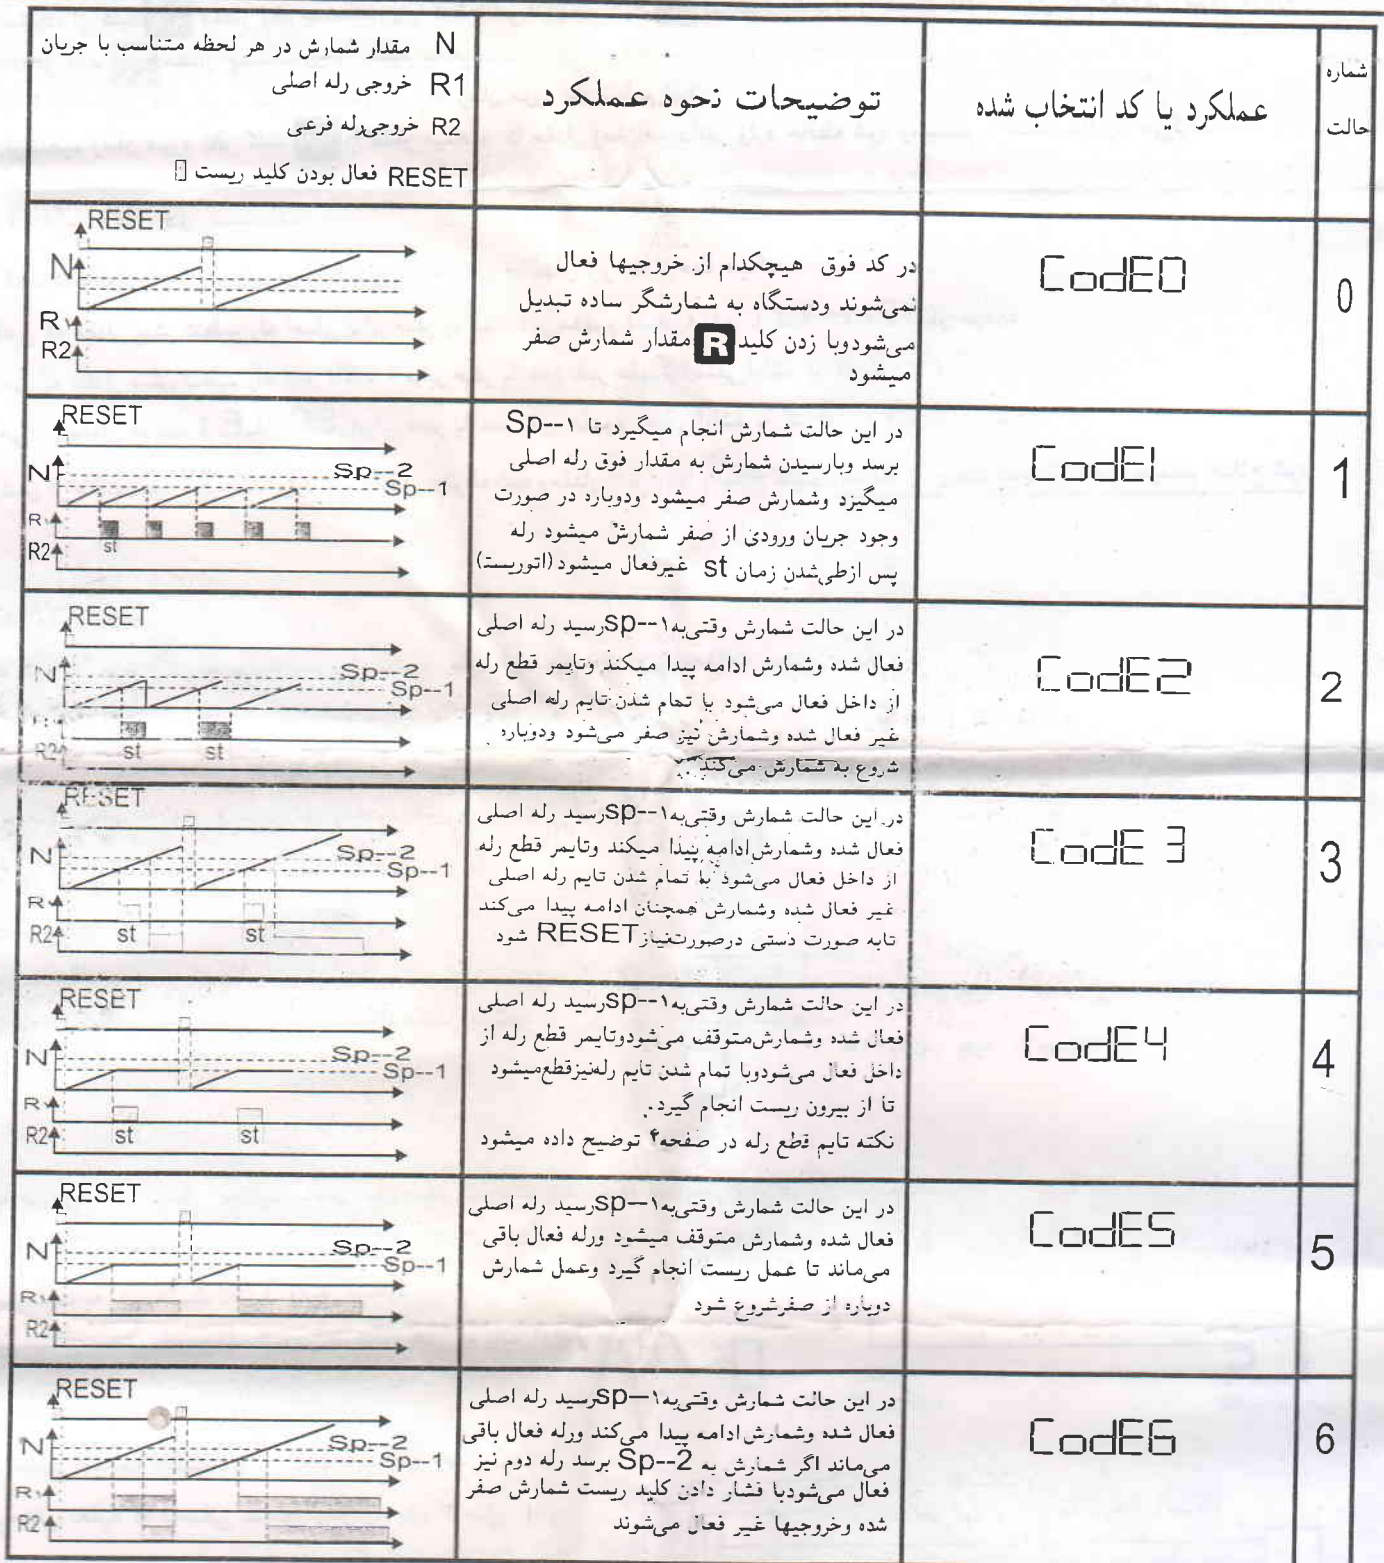 شماره
حالت
عملکرد یا کد انتخاب شده
توضیحات نحوه عملکرد
N مقدار شمارش در هر لحظه متناسب با جریان
R1 خروجی رله اصلی
R2 خروجی رله فرعی
RESET فعال بودن کلید ریست
0
CodE0
در کد فوق هیچکدام از خروجیها فعال
نمی‌شوند ودستگاه به شمارشگر ساده تبدیل
می‌شودوبا زدن کلید R مقدار شمارش صفر
میشود
RESET
N
R۱
R2
1
CodE1
در این حالت شمارش انجام میگیرد تا Sp--۱
برسد وبارسیدن شمارش به مقدار فوق رله اصلی
میگیزد وشمارش صفر میشود ودوباره در صورت
وجود جریان ورودی از صفر شمارش میشود رله
پس ازطی‌شدن زمان st غیرفعال میشود(اتوریست)
RESET
Sp--2
N
Sp--1
R۱
st
R2
2
CodE2
در این حالت شمارش وقتی‌به۱--spرسید رله اصلی
فعال شده وشمارش ادامه پیدا میکند وتایمر قطع رله
از داخل فعال می‌شود با تمام شدن تایم رله اصلی
غیر فعال شده وشمارش نیز صفر می‌شود ودوباره
شروع به شمارش می‌کند
RESET
Sp--2
N
Sp--1
R2
st st
3
CodE 3
در این حالت شمارش وقتی‌به۱--spرسید رله اصلی
فعال شده وشمارش ادامه پیدا میکند وتایمر قطع رله
از داخل فعال می‌شود با تمام شدن تایم رله اصلی
غیر فعال شده وشمارش همچنان ادامه پیدا می‌کند
تابه صورت دستی درصورت‌نیازRESET شود
RESET
Sp--2
N
Sp--1
R۱
R2
st st
4
CodE4
در این حالت شمارش وقتی‌به۱--spرسید رله اصلی
فعال شده وشمارش‌متوقف می‌شودوتایمر قطع رله از
داخل فعال می‌شودوبا تمام شدن تایم رله‌نیزقطع‌میشود
تا از بیرون ریست انجام گیرد.
نکته تایم قطع رله در صفحه۴ توضیح داده میشود
RESET
Sp--2
N
Sp--1
R۱
R2
st st
5
CodE5
در این حالت شمارش وقتی‌به۱--spرسید رله اصلی
فعال شده وشمارش متوقف میشود ورله فعال باقی
می‌ماند تا عمل ریست انجام گیرد وعمل شمارش
دوباره از صفرشروع شود
RESET
Sp--2
N
Sp--1
R۱
R2
6
CodE6
در این حالت شمارش وقتی‌به۱--spرسید رله اصلی
فعال شده وشمارش ادامه پیدا می‌کند ورله فعال باقی
می‌ماند اگر شمارش به Sp--2 برسد رله دوم نیز
فعال می‌شودبا فشار دادن کلید ریست شمارش صفر
شده وخروجیها غیر فعال می‌شوند
RESET
Sp--2
N
Sp--1
R۱
R2